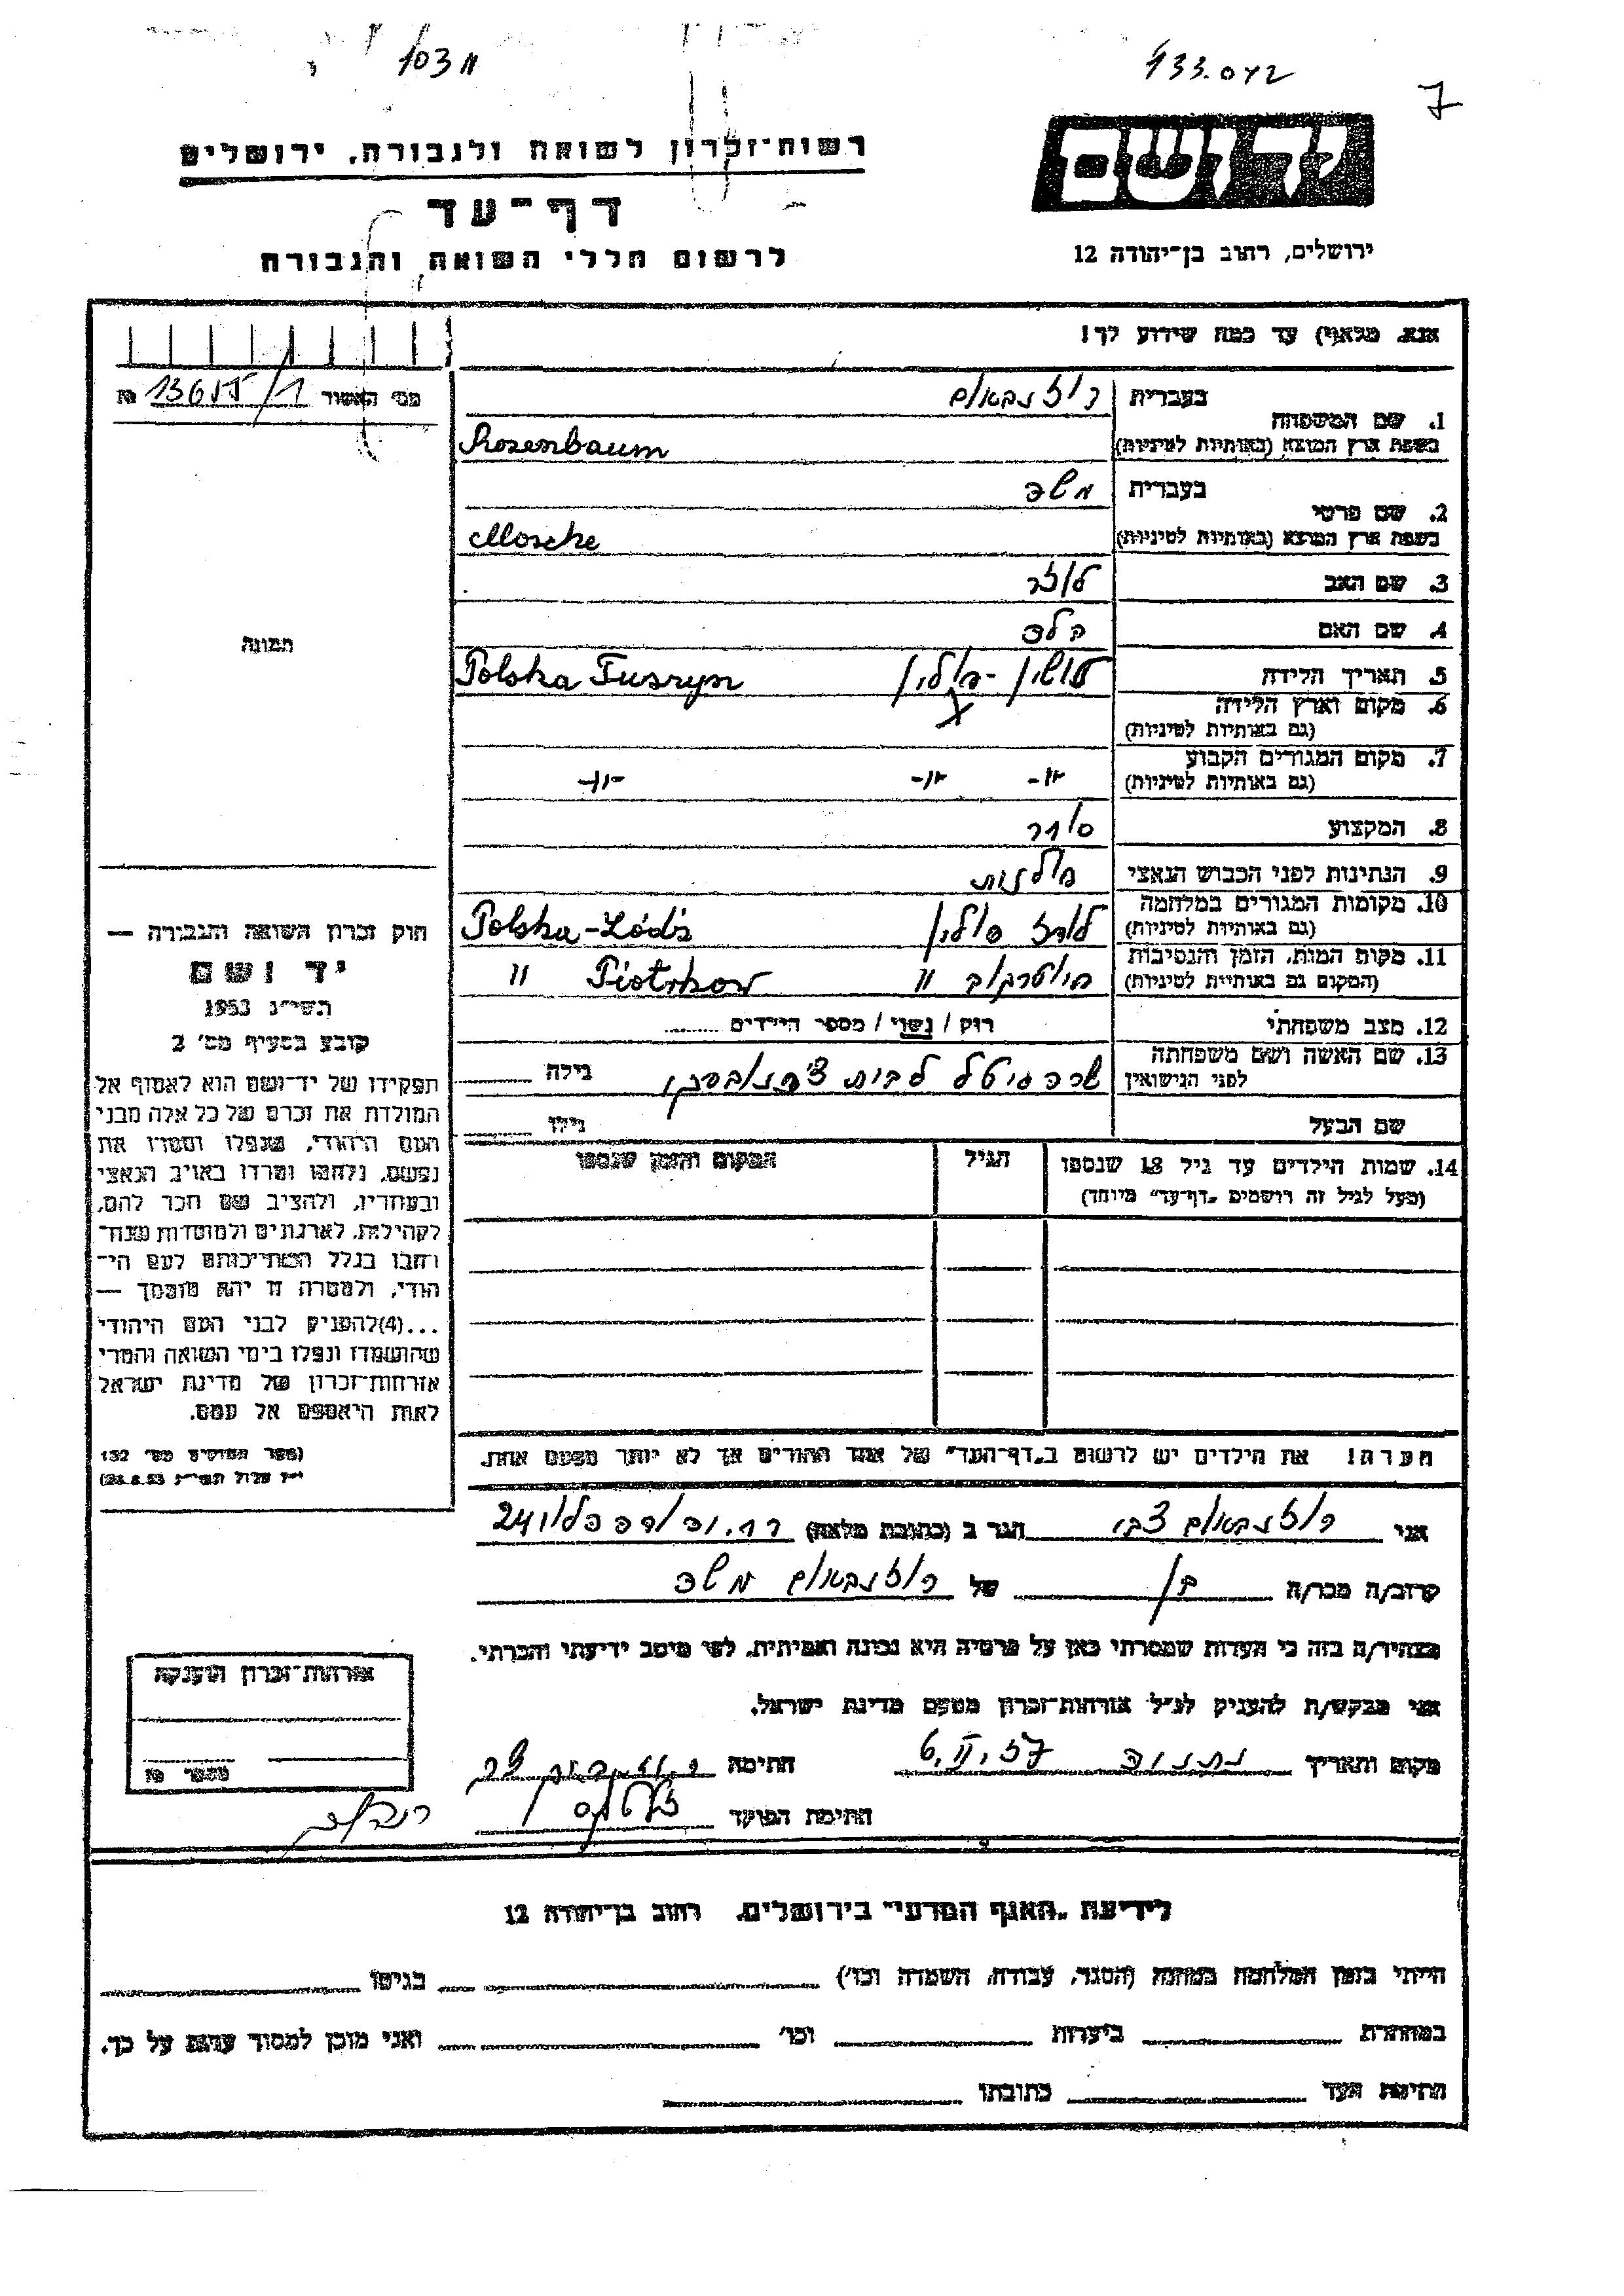 103 װ
133.042
7
רשות־זכרון לשואה ולגבורה, ירושלים
יד ושם
דף־עד
לרשום חללי השואה והגבורה
ירושלים, רחוב בן־יהודה 12
אנא, מלא(י) עד כמה שידוע לך!
מס' האשור 13655/1 מס
1. שם המשפחה
בעברית רוזנבאום
בשפת ארץ המוצא (באותיות לטיניות) Rozenbaum
2. שם פרטי
בעברית משה
בשפת ארץ המוצא (באותיות לטיניות) Mosche
3. שם האב לוזר
4. שם האם הלה
5. תאריך הלידה
טושין - פולין Polska Tuszyn
6. מקום וארץ הלידה
(גם באותיות לטיניות)
7. מקום המגורים הקבוע
(גם באותיות לטיניות) -"- -"- -"-
8. המקצוע סוחר
9. הנתינות לפני הכבוש הנאצי פולנית
10. מקומות המגורים במלחמה
(גם באותיות לטיניות) לודז פולין Polska-Łódź
11. מקום המות, הזמן והנסיבות
(המקום גם באותיות לטיניות) פיוטרקוב " Piotrkow "
12. מצב משפחתי רוק / נשוי / מספר הילדים
13. שם האשה ושם משפחתה
לפני הנישואין שרה גיטל לבית גילה
שם הבעל גילו
14. שמות הילדים עד גיל 18 שנספו
(מעל לגיל זה רושמים "דף־עד" מיוחד)
הגיל
המקום והזמן שנספו
תמונה
חוק זכרון השואה והגבורה —
יד ושם
תשי"ג 1953
קובע בסעיף מס' 2
תפקידו של יד־ושם הוא לאסוף אל
המולדת את זכרם של כל אלה מבני
העם היהודי, שנפלו ומסרו את
נפשם, נלחמו ומרדו באויב הנאצי
ובעוזריו, ולהציב שם וזכר להם,
לקהילות, לארגונים ולמוסדות שנח־
רבו בגלל השתייכותם לעם הי־
הודי, ולמטרה זו יהא מוסמך —
...(4) להעניק לבני העם היהודי
שהושמדו ונפלו בימי השואה והמרי
אזרחות־זכרון של מדינת ישראל
לאות היאספם אל עמם.
(ספר החוקים מס' 132
י"ז אלול תשי"ג 28.8.53)
הערה! את הילדים יש לרשום ב"דף־העד" של אחד ההורים אך לא יותר מפעם אחת.
אני רוזנבאום צבי הגר ב (כתובת מלאה) 24
קרוב/ה מכר/ה בן של רוזנבאום משה
מצהיר/ה בזה כי העדות שמסרתי כאן על פרטיה היא נכונה ואמיתית, לפי מיטב ידיעתי והכרתי.
אני מבקש/ת להעניק לנ"ל אזרחות־זכרון מטעם מדינת ישראל.
מקום ותאריך נתניה 6.II.57 חתימה
חתימת הפוקד
אזרחות־זכרון הוענקה
מספר מס
לידיעת "האגף המדעי" בירושלים, רחוב בן־יהודה 12
הייתי בזמן המלחמה במחנה (הסגר, עבודה, השמדה וכו') בגיטו
במחתרת ביערות וכו' ואני מוכן למסור עדות על כך.
חתימת העד כתובתו